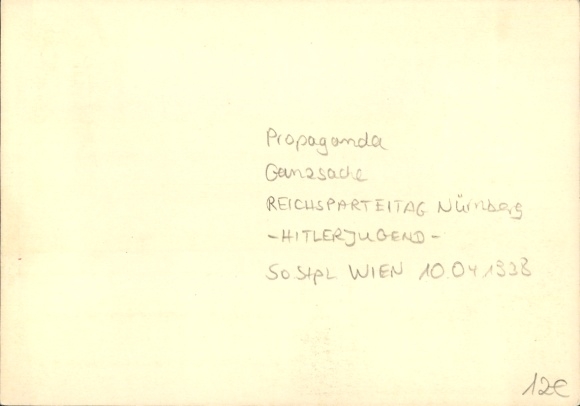 Propaganda
Ganzsache
REICHSPARTEITAG Nürnberg
-HITLERJUGEND-
SoStpL WIEN 10.04.1938
12€